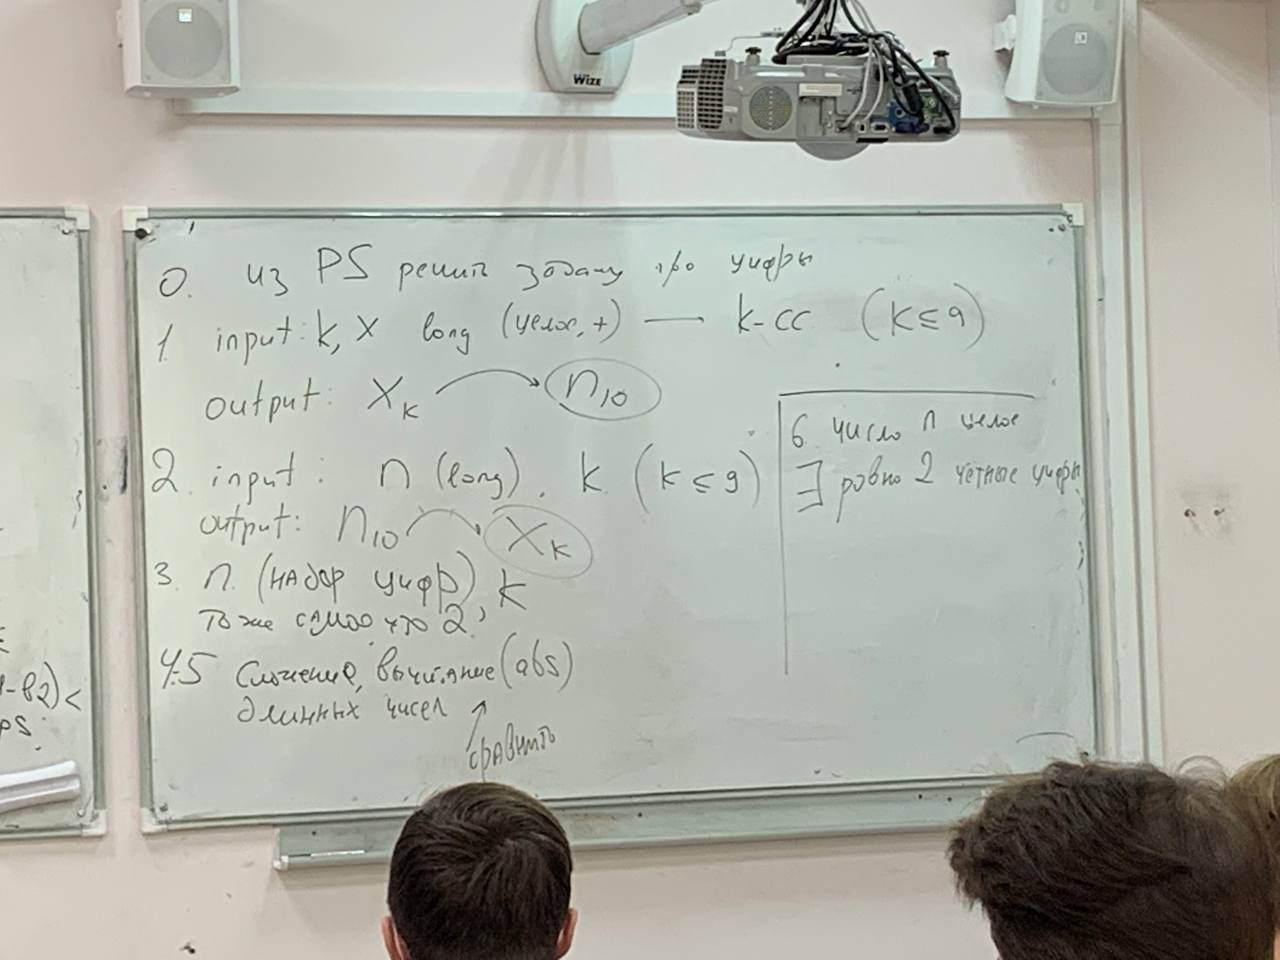 WiZE
0. из PS решить задачу про цифры
1. input: k, x long (целое, +) — k-cc (k ≤ 9)
output: x_k → n_10
2. input: n (long), k (k ≤ 9)
output: n_10 → x_k
3. n (набор цифр), k
То же самое что 2
4.5 Сложение, вычитание (abs)
длинных чисел
сравнить
6 число n целое
∃ ровно 2 чётные цифры
-в2) <